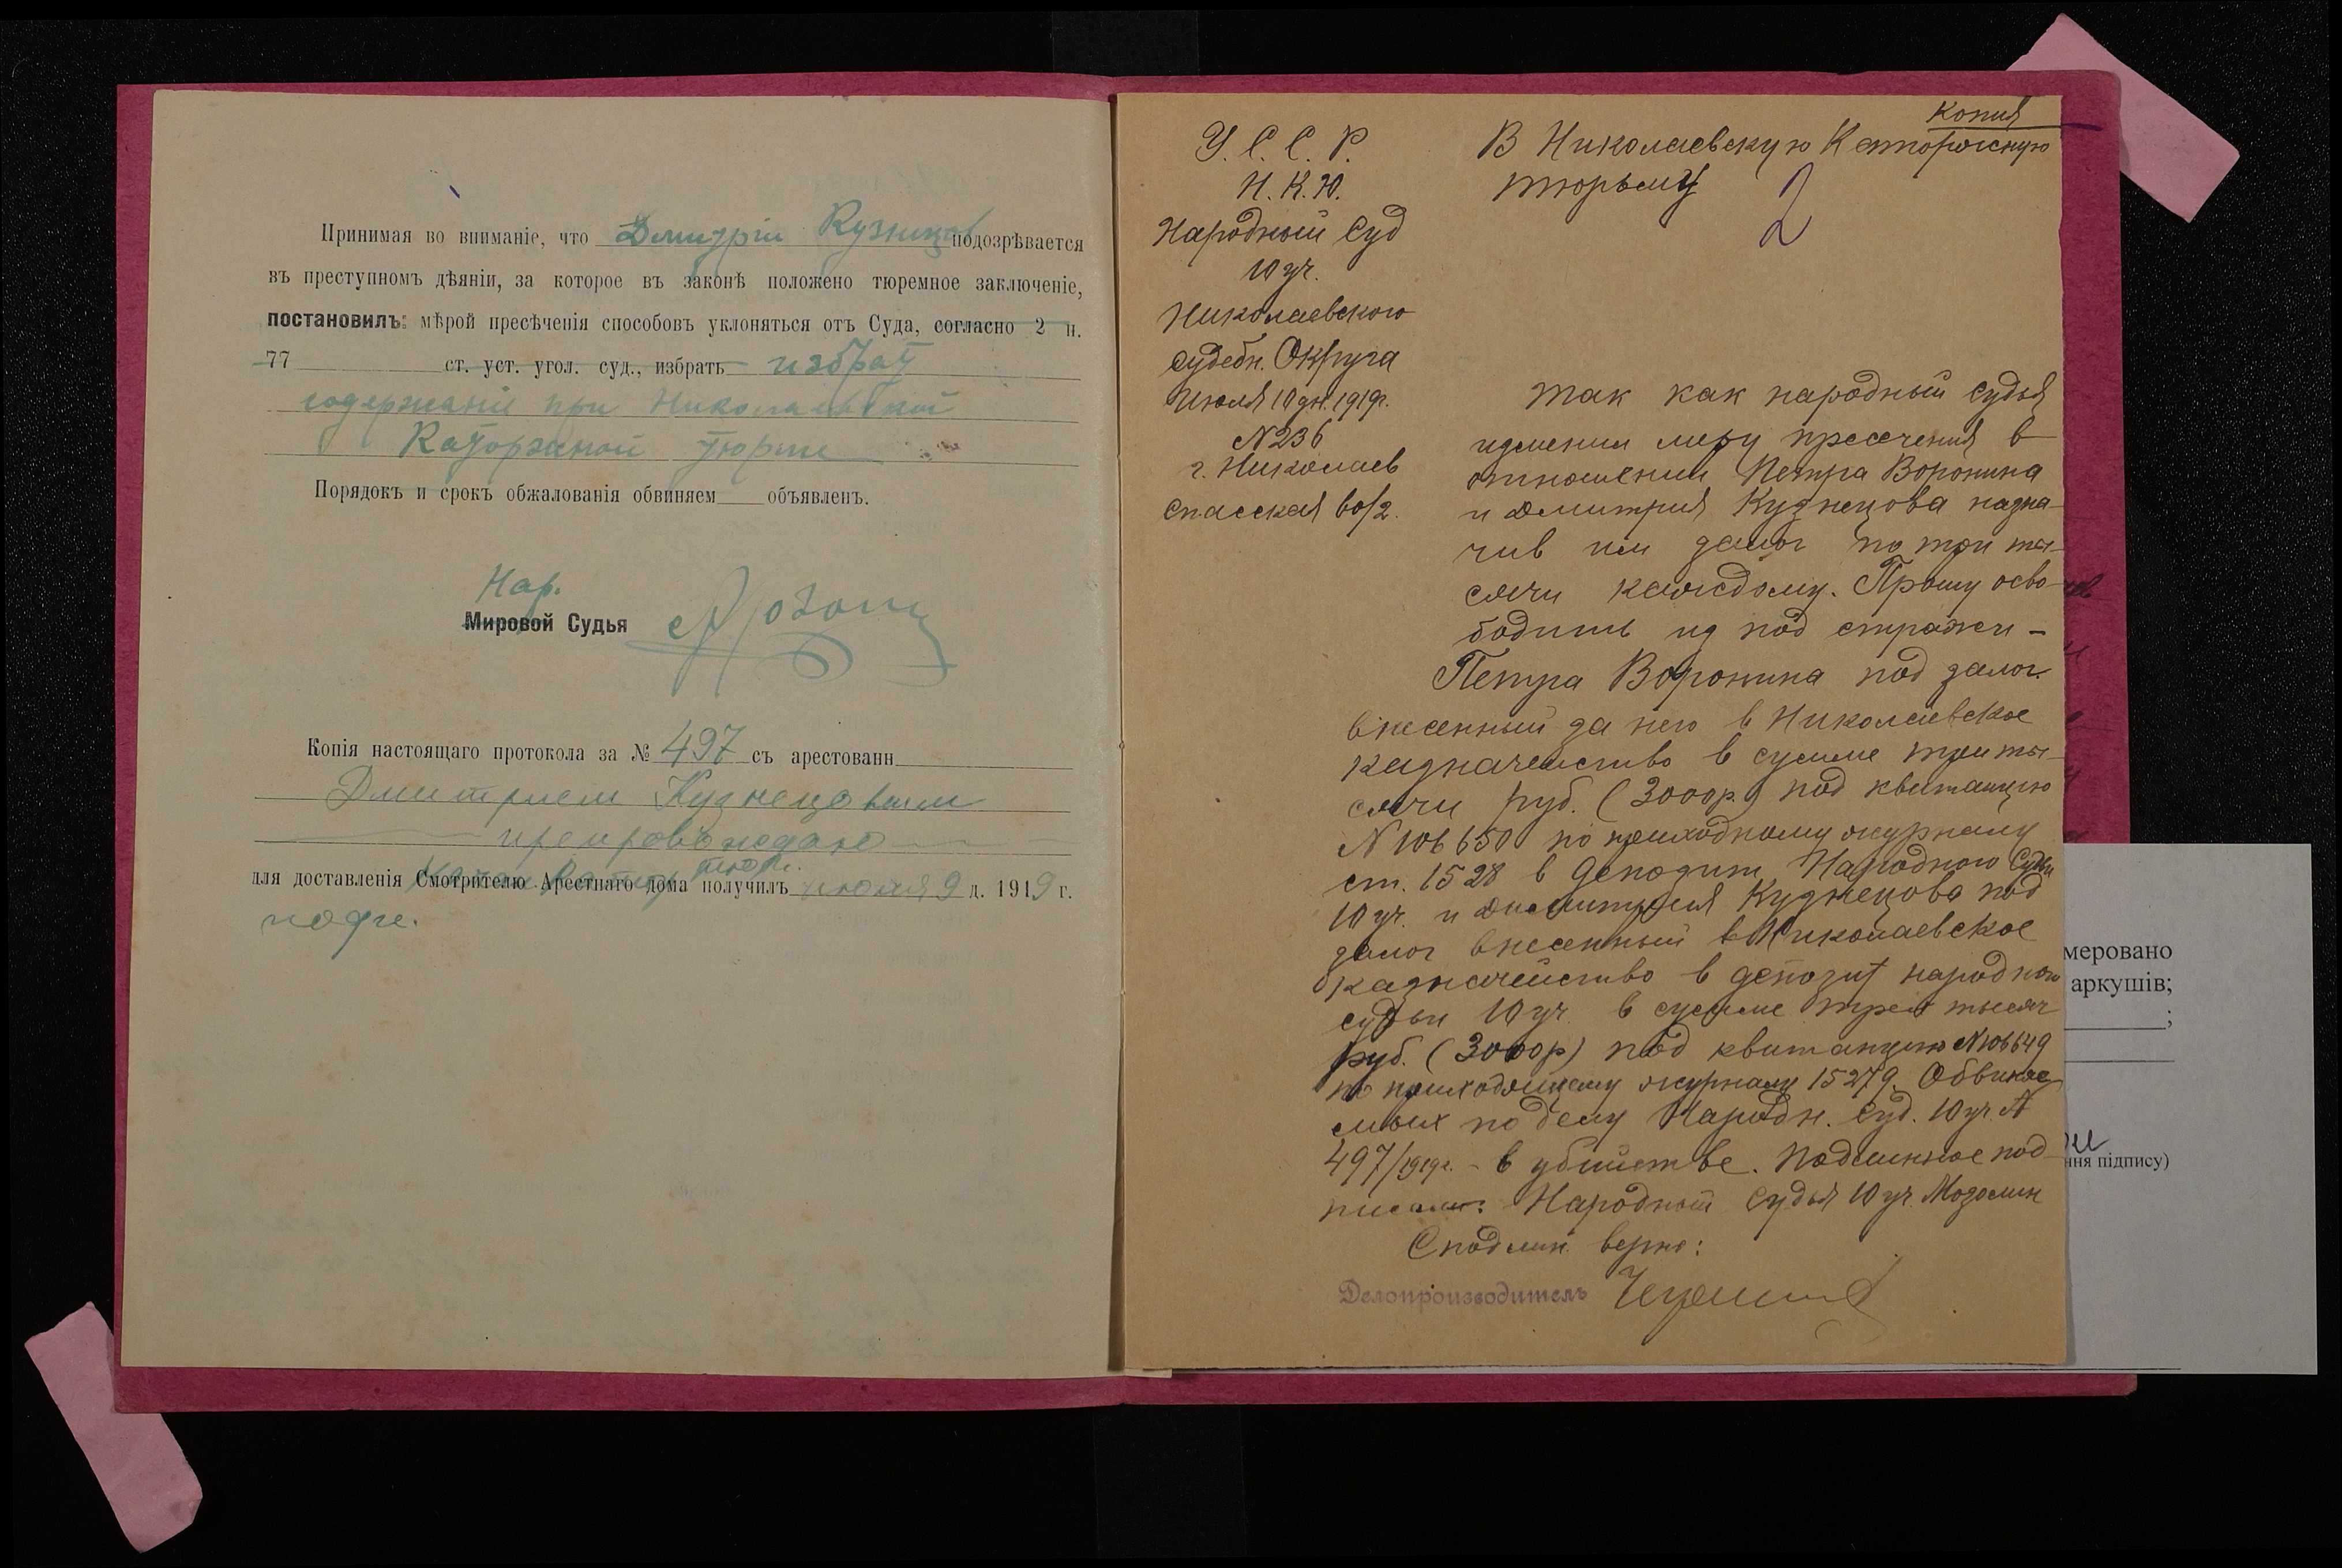 Принимая во вниманіе, что Дмитрій Кузнецов подозрѣвается
въ преступномъ дѣяніи, за которое въ законѣ положено тюремное заключеніе,
постановилъ: мѣрой пресѣченія способовъ уклоняться отъ Суда, согласно 2 п.
77 ст. уст. угол. суд., избрать избрат
содержаніе при Николаевской
Каторжной тюрме
Порядокъ и срокъ обжалованія обвиняем объявленъ.
Нар.
Мировой Судья
Копія настоящаго протокола за № 497 съ арестованн
Дмитрием Кузнецовым
препровождаю
тюрм.
для доставленія Смотрителю Арестнаго дома получилъ июля 9 д. 1919 г.
Копия
У. С. С. Р.
Н. К. Ю.
Народный Суд
10 уч.
Николаевского
судебн. Округа
Июля 10 дн. 1919г.
N 236
г. Николаев
Спасская 60/2.
В Николаевскую Каторжную
тюрьму
2
Так как народный судья
изменил меру пресечения в
отношении Петра Воронина
и Дмитрия Кузнецова назна-
чив им залог по три ты-
сячи каждому. Прошу осво-
бодить из под стражи -
Петра Воронина под залог
внесенный за него в Николаевское
казначейство в сумме три ты-
сячи руб. (3000р.) под квитанцию
N 106650 по приходному журналу
ст. 1528 в депозит Народного Судьи
10 уч. и Дмитрия Кузнецова под
залог внесенный в Николаевское
казначейство в депозит народного
судьи 10 уч. в сумме трех тысяч
руб. (3000р) под квитанцию N 106649
по приходящему журналу 15279. Обвиняе
мых по делу Народн. Суд. 10 уч. N
497/1919г. - в убийстве. Подлинное под-
писали: Народный Судья 10 уч. Мозолин
С подлин. верно:
Делопроизводитель
меровано
аркушів;
;
ння підпису)